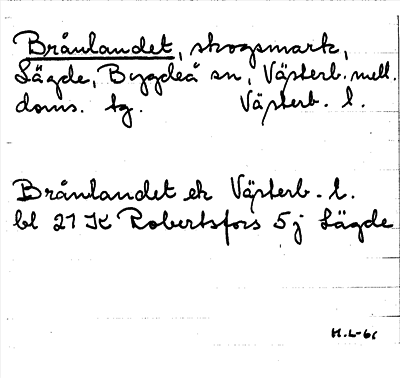 Brånlandet, skogsmark,
Lägde, Bygdeå sn, Västerb. mell.
doms. tg. Västerb. l.
Brånlandet ek Västerb. l.
bl 21 K Robertsfors 5 j Lägde
H.L-61